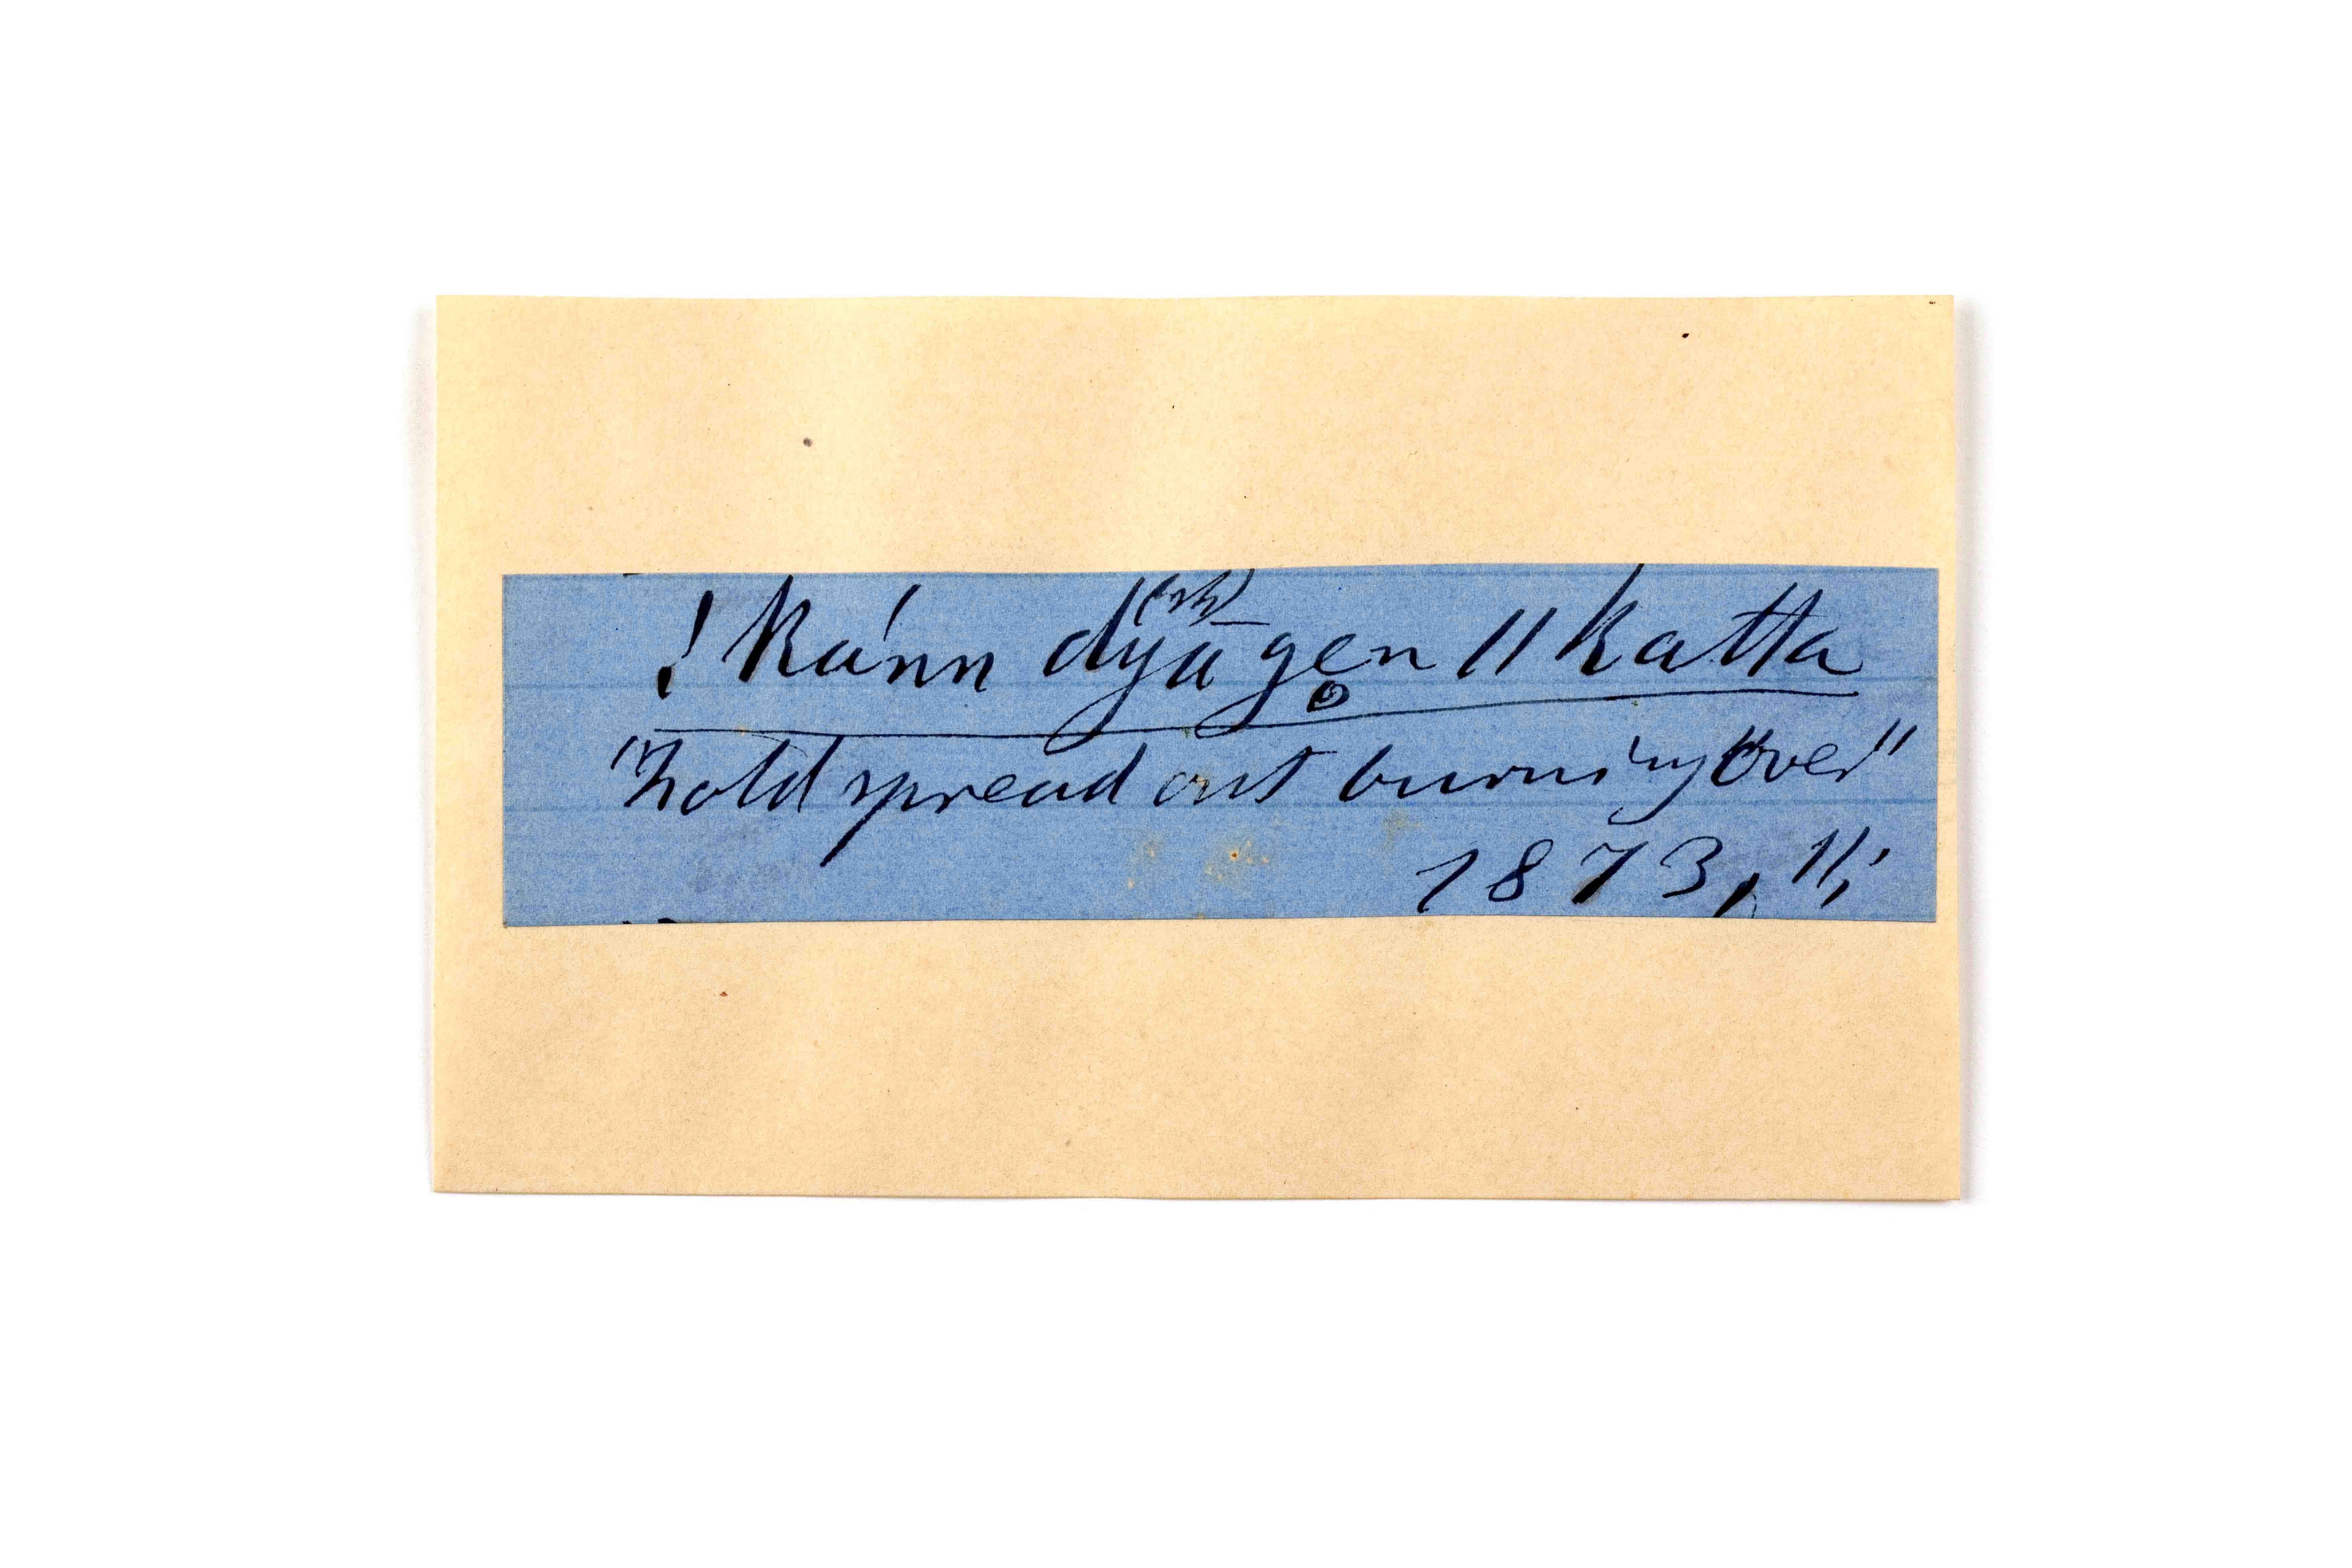 ! kánn dyāgen̥ || katta
"hold spread out burning over"
1873, 11,